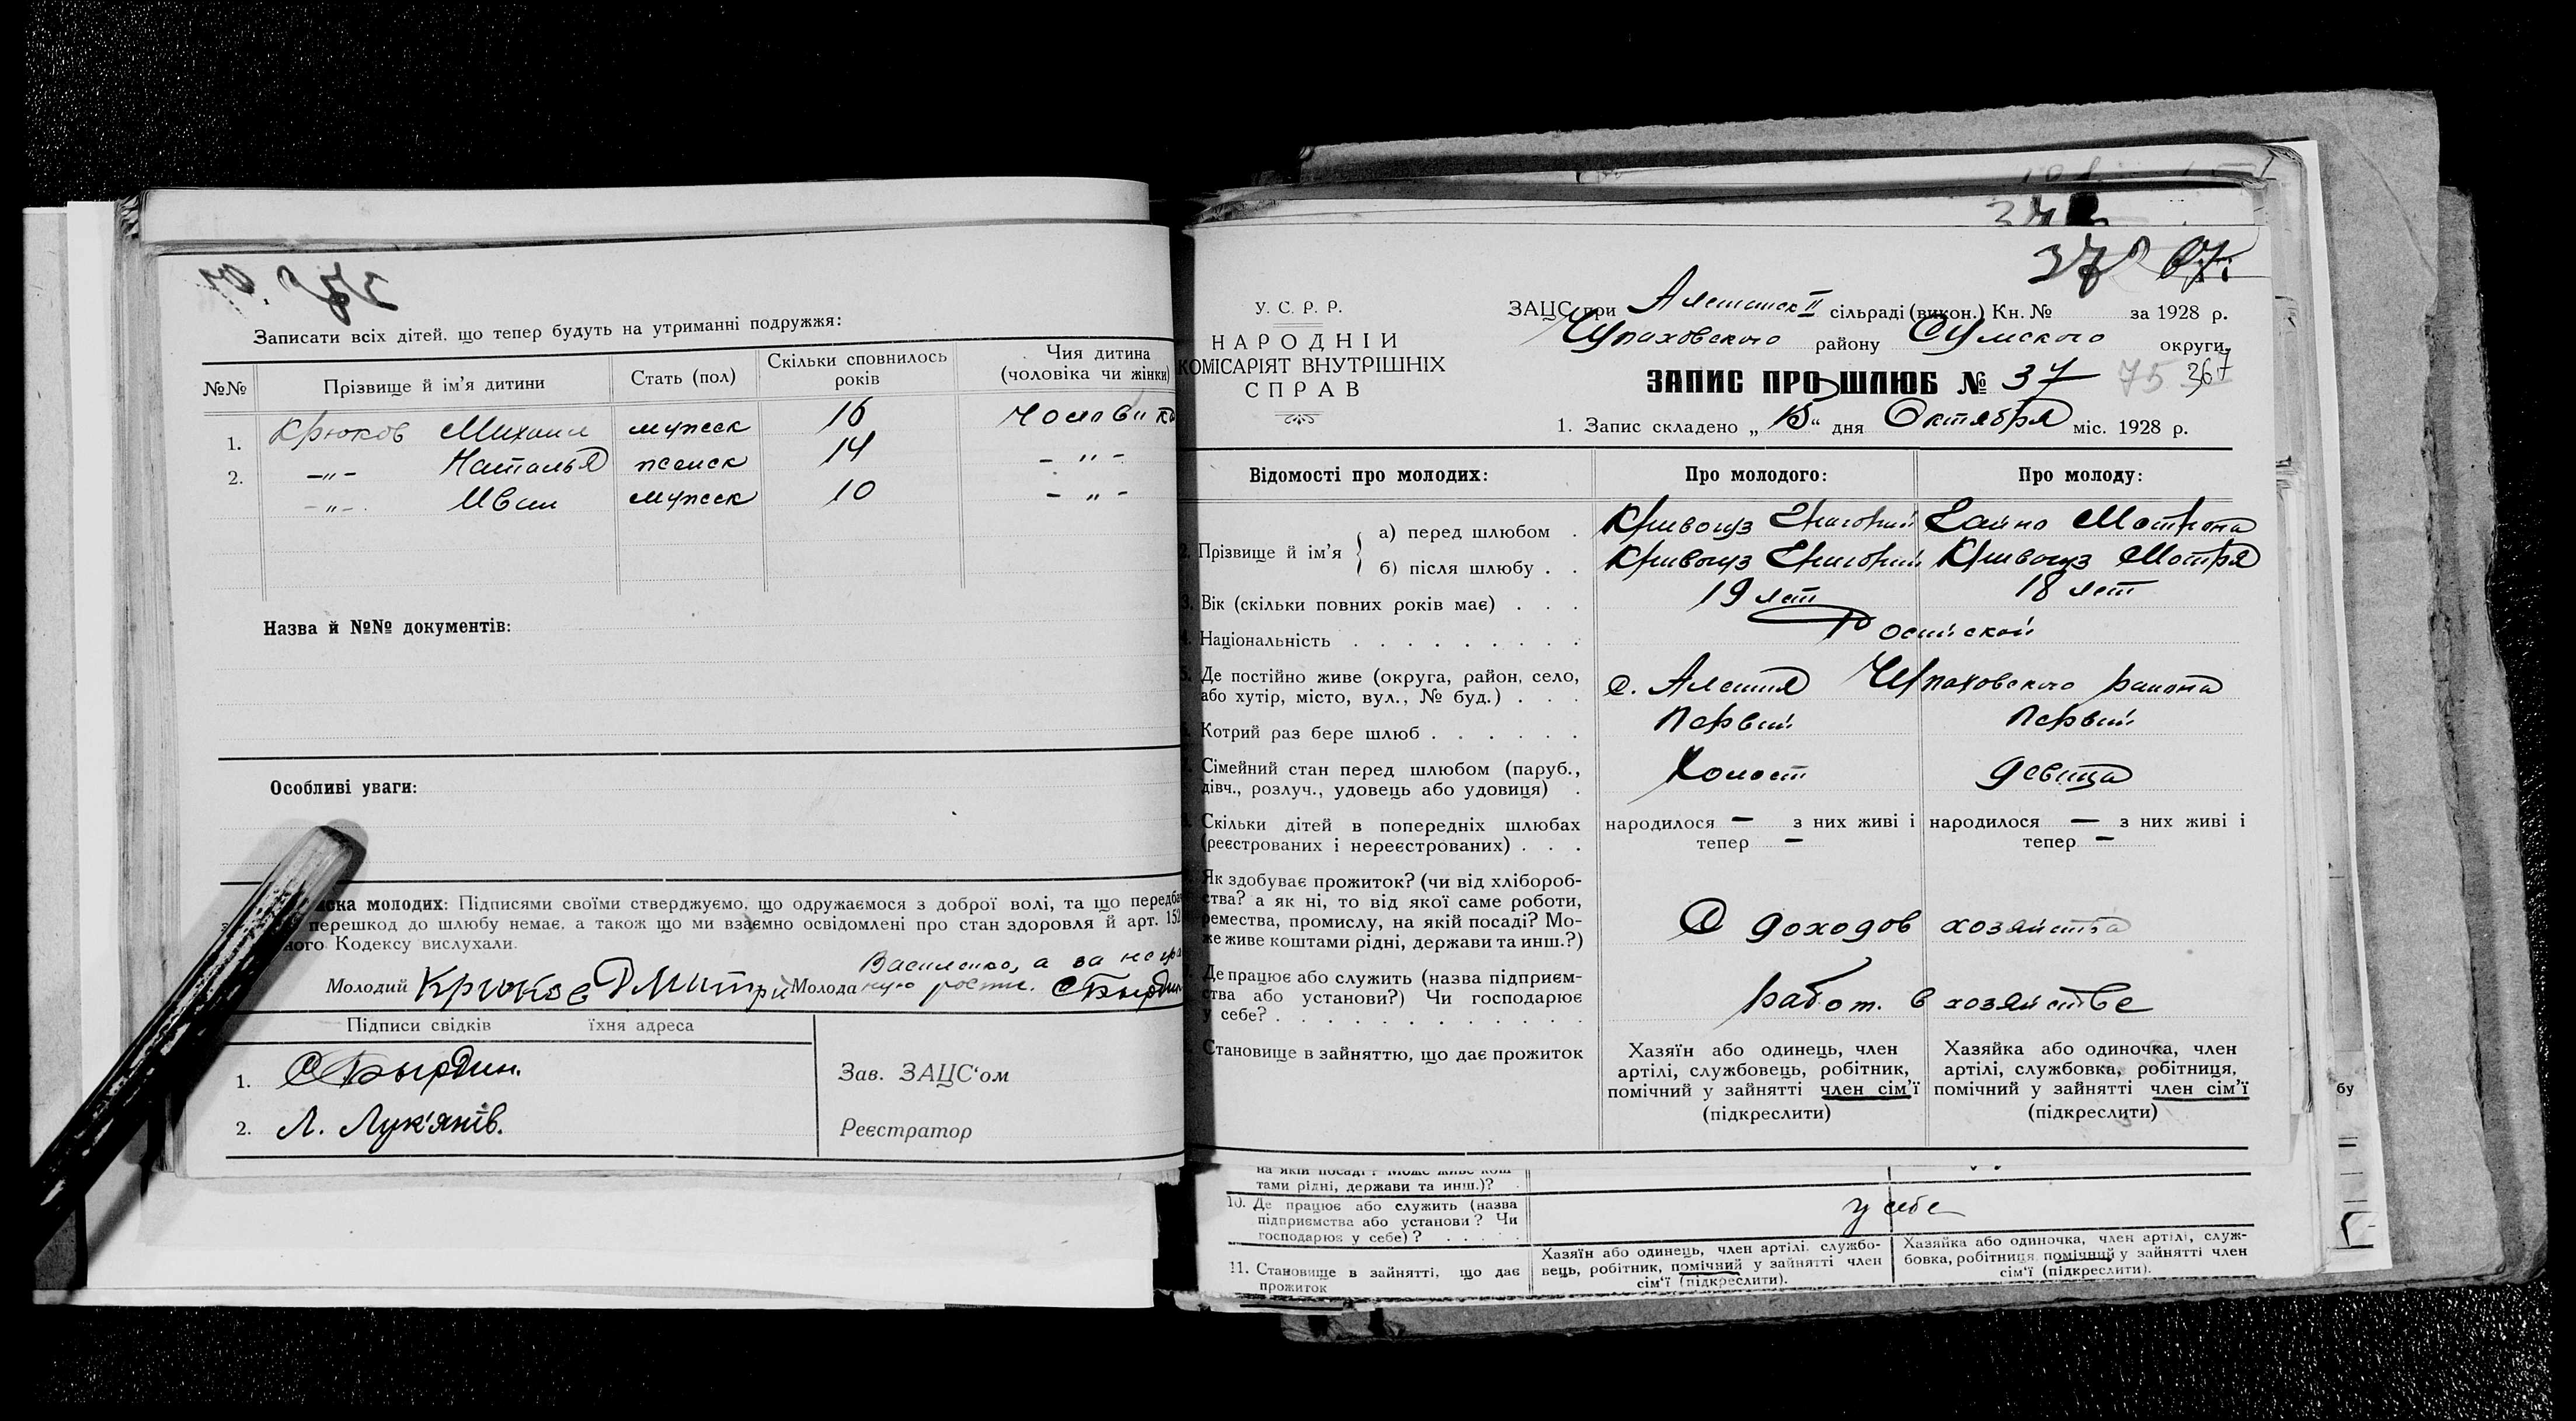 Записати всіх дітей, що тепер будуть на утриманні подружжя:
№№ Прізвище й ім'я дитини Стать (пол) Скільки сповнилось років Чия дитина (чоловіка чи жінки)
1. Крюков Михаил мужск 16 Чоловіка
2. -„- Наталья женск 14 -„-
-„- Иван мужск 10 -„-
Назва й №№ документів:
Особливі уваги:
ска молодих: Підписями своїми стверджуємо, що одружаємося з доброї волі, та що передба
перешкод до шлюбу немає, а також що ми взаємно освідомлені про стан здоров'я й арт. 152
ного Кодексу вислухали.
Василенко, а за негра
Молодий Крюков Дмитри Молода С Бырдин
Підписи свідків їхня адреса
1. С Бырдин.
2. Л. Лук'янів.
Зав. ЗАЦС'ом
Реєстратор
У. С. Р. Р.
НАРОДНІЙ
КОМІСАРІЯТ ВНУТРІШНІХ
СПРАВ
ЗАЦС при II сільраді (викон.) Кн. № за 1928 р.
району Сумского округи
ЗАПИС ПРО ШЛЮБ № 37 75 367
1. Запис складено „15“ дня Октября міс. 1928 р.
Відомості про молодих: Про молодого: Про молоду:
2. Прізвище й ім'я
а) перед шлюбом . Кривогуз Григорий Мотрона
б) після шлюбу . . Кривогуз Григорий Кривогуз Мотря
3. Вік (скільки повних років має) . . . 19 лет 18 лет
4. Національність . . . . . . . . . Російской
5. Де постійно живе (округа, район, село,
або хутір, місто, вул., № буд.) . . . с. Алешня района
Котрий раз бере шлюб . . . . . . Первий Первий
Сімейний стан перед шлюбом (паруб.,
дівч., розлуч., удовець або удовиця) . Холост девица
Скільки дітей в попередніх шлюбах
(реєстрованих і нереєстрованих) . . .
народилося — з них живі і
тепер —
народилося — з них живі і
тепер —
Як здобуває прожиток? (чи від хлібороб-
ства? а як ні, то від якої саме роботи,
ремества, промислу, на якій посаді? Мо-
же живе коштами рідні, держави та инш.?)
С доходов хозяйства
Де працює або служить (назва підприєм-
ства або установи?) Чи господарює
у себе? . . . . . . . . . . . .
работ. в хозяйстве
Становище в зайняттю, що дає прожиток
Хазяїн або одинець, член
артілі, службовець, робітник,
помічний у зайнятті член сім'ї
(підкреслити)
Хазяйка або одиночка, член
артілі, службовка, робітниця,
помічний у зайнятті член сім'ї
(підкреслити)
на якій посаді? Може живе кош
тами рідні, держави та инш.)?
10. Де працює або служить (назва
підприємства або установи? Чи
господарює у себе)? . . . . .
у себе
11. Становище в зайнятті, що дає
прожиток
Хазяїн або одинець, член артілі, службо-
вець, робітник, помічний у зайнятті член
сім'ї (підкреслити).
Хазяйка або одиночка, член артілі, служ-
бовка, робітниця, помічний у зайнятті член
сім'ї (підкреслити).
бу